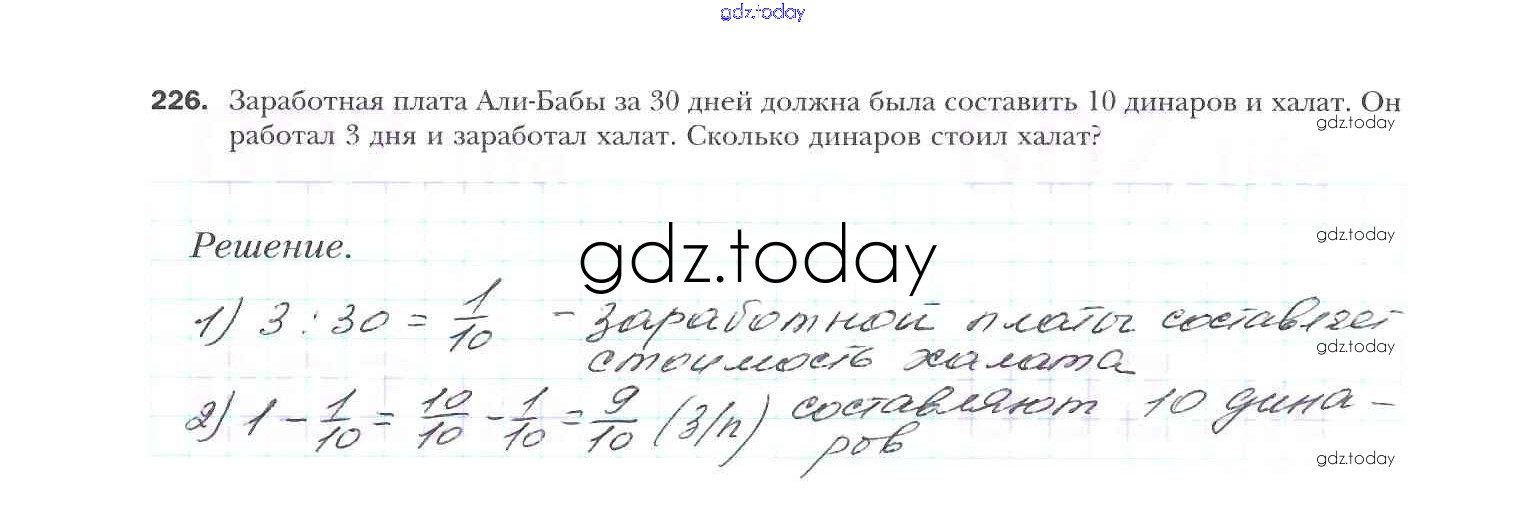 gdz.today
226. Заработная плата Али-Бабы за 30 дней должна была составить 10 динаров и халат. Он
gdz.today
работал 3 дня и заработал халат. Сколько динаров стоил халат?
Решение.
gdz.today
gdz.today
1) 3 : 30 = 1/10 - заработной платы составляет
gdz.today
стоимость халата
2) 1 - 1/10 = 10/10 - 1/10 = 9/10 (з/п) составляют 10 дина-
ров
gdz.today